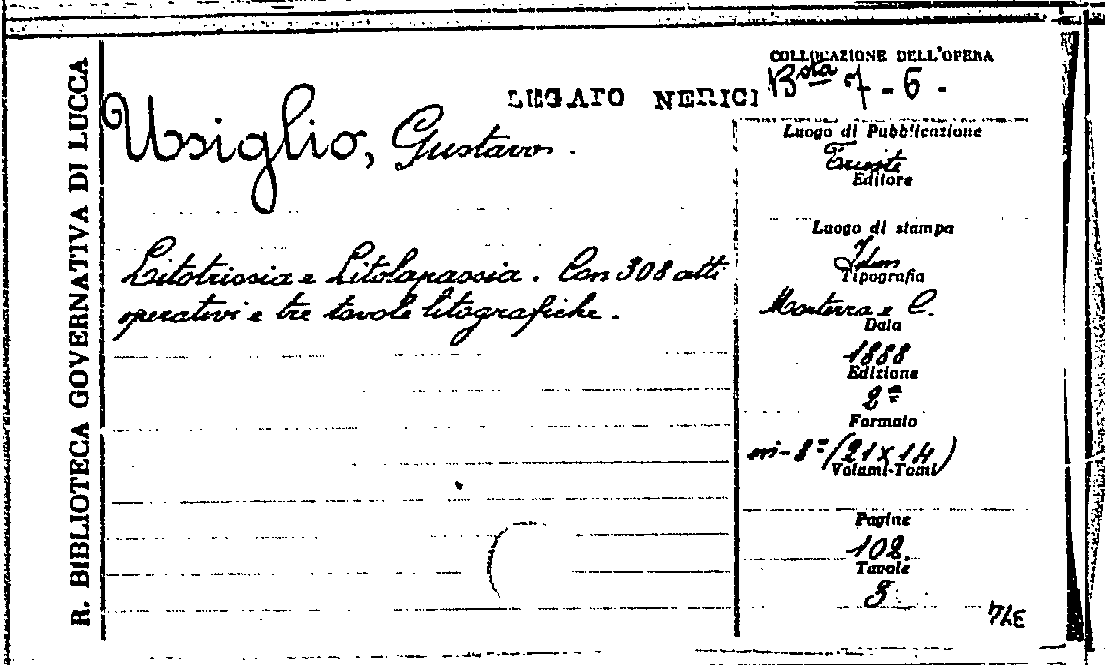 R. BIBLIOTECA GOVERNATIVA DI LUCCA
COLLOCAZIONE DELL'OPERA
LEGATO NERICI
Bta 7 - 6 -
Usiglio, Gustavo.
Litotrissia e Litolapassia. Con 308 atti
operativi e tre tavole litografiche.
Luogo di Pubblicazione
Trieste
Editore
Luogo di stampa
Idem
Tipografia
Morterra e C.
Data
1888
Edizione
2ª
Formato
in-8° (21 x 14)
Volumi-Tomi
Pagine
102.
Tavole
3
374